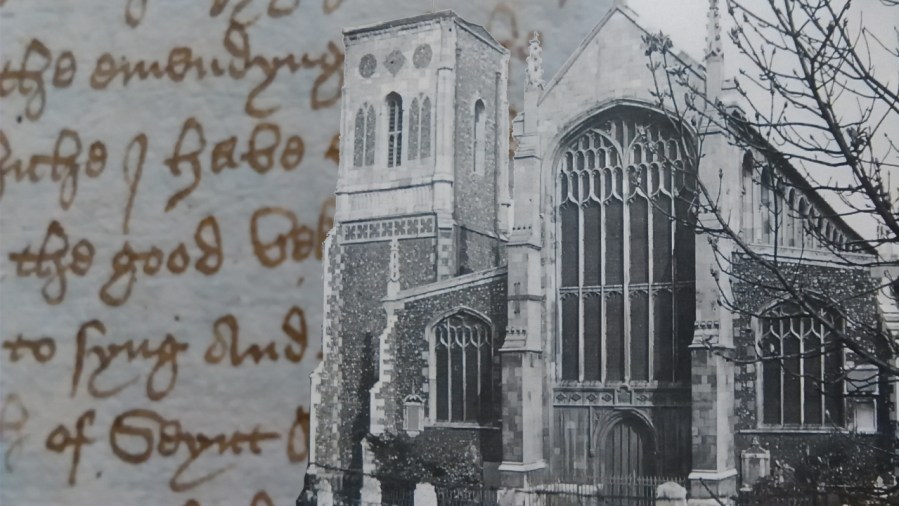 the emendyng
I have
the good
to syng And
of Seynt